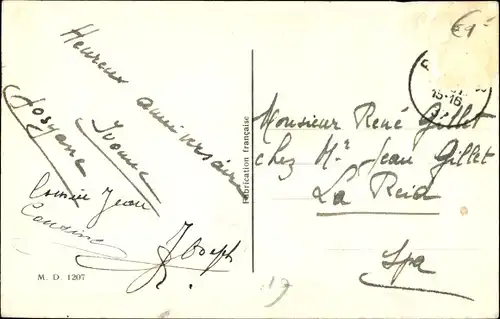 Heureux anniversaire
Josyane
Yvonne
Cousin Jean
Cousine
Joseph
M. D. 1207
Fabrication française
€1-
15-16
Monsieur René Gillet
chez Mr Jean Gillet
La Reid
Spa
17